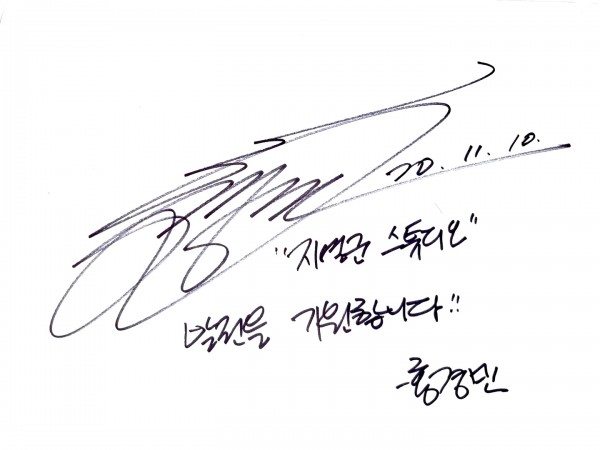 20. 11. 10.
"지영군 스튜디오"
발전을 기원합니다!!
홍경민